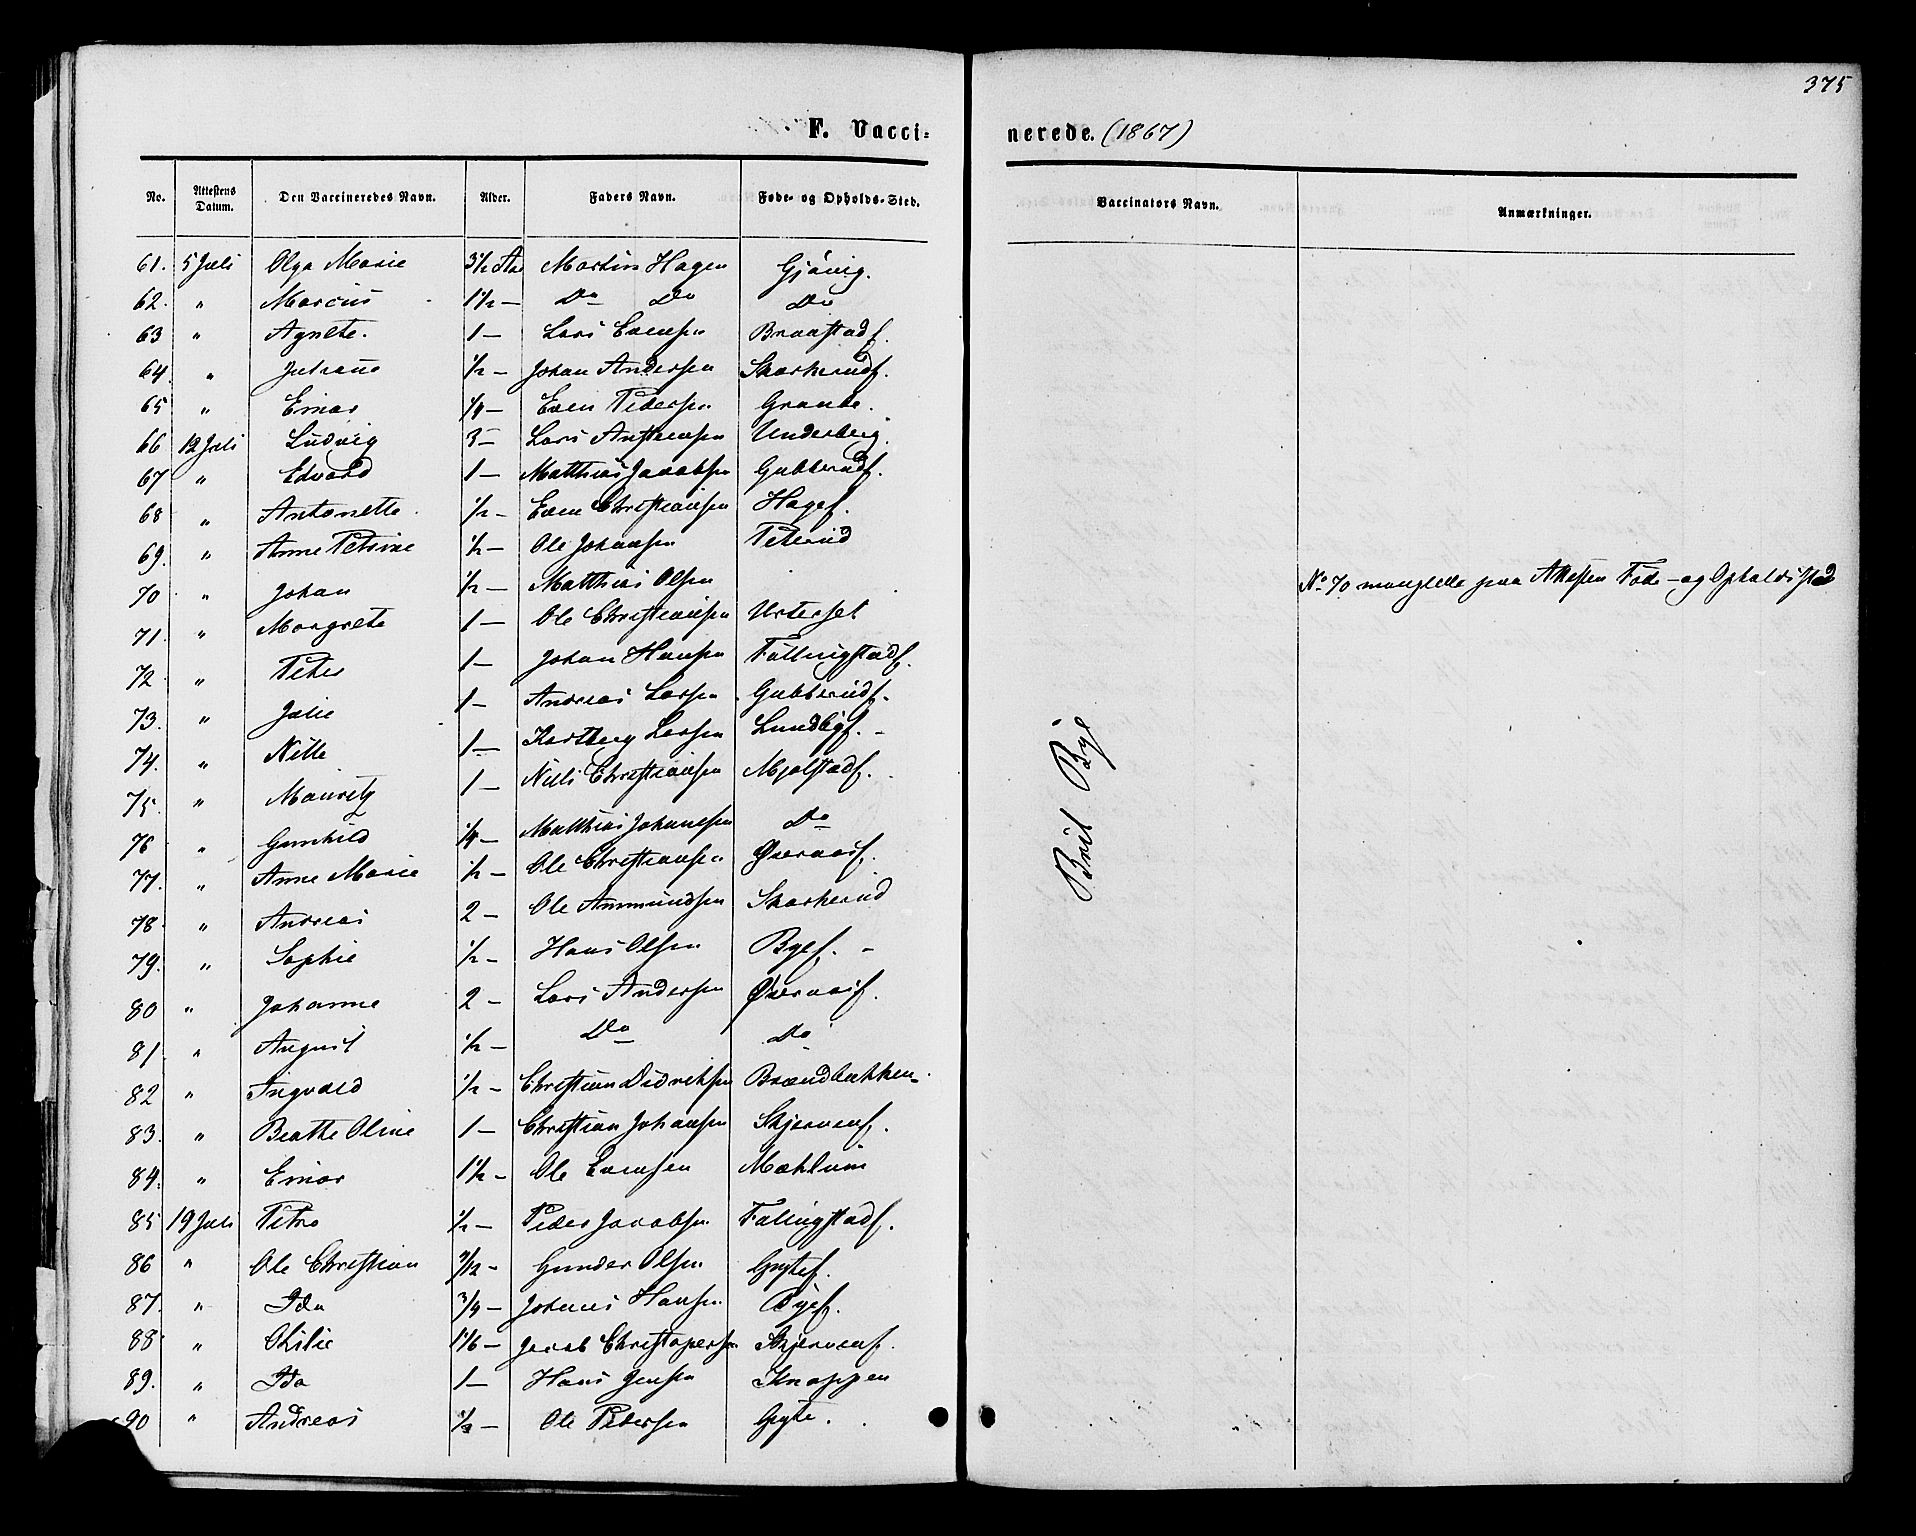 375
F. Vacci-nerede. (1867)
No. Attestens Datum. Den Vaccineredes Navn. Alder. Faders Navn. Føde- og Opholds-Sted. Vaccinators Navn. Anmærkninger.
61. 5 Juli Olga Marie 3½ Aar Martin Hagen Gjøvig.
62. " Marcus 1½ — Do Do Do
63 " Agnete. 1 — Lars Evensen Braastadf.
64. " Juliane ½ — Johan Andersen Skarkerudf.
65 " Einar ¼ — Even Pedersen Grande.
66 12 Juli Ludvig 3 — Lars Antonsen Underberg.
67 " Edvard 1 — Matthias Jacobsen Gubberudf.
68 " Antonette. ½ — Even Christiansen Hagef.
69. " Anne Petrine ½ — Ole Johansen Peterud
70 " Johan ½ — Matthias Olsen No 70 manglede paa Attesten Føde- og Opholdssted
71. " Margrete 1 — Ole Christiansen Urterset
72. " Peter 1 — Johan Hansen Fallingstadf.
73. " Julie 1 — Andreas Larsen Gubberudf.
74. " Nille 1 — Larsen Lundbgf. —
75. " Mauritz 1 — Niels Christiansen Mjølstadf.
76 " Gunhild ¼ — Matthias Johansen Do
77. " Anne Marie ½ — Ole Christiansen Øveraasf.
78. " Andreas 2 — Ole Ammundsen Skarkerud
79. " Sophie ½ — Hans Olsen Byef. —
80 " Johanne 2 — Lars Andersen Øveraasf.
81. " August ½ — Do Do
82 " Ingvald ½ — Christian Didriksen Brændbakken.
83. " Beathe Oline 1 — Christian Johansen Skjervenf.
84. " Einar 1½ — Ole Evensen Mæhlum
85 19 Juli Petra ½ — Peder Jacobsen Falingstadf.
86 " Ole Christian /12 — Gunder Olsen Grytef.
87. " Ida ¾ — Johanes Hansen Byef.
88 " Otilie 1 1/6 — Jacob Christophersen Skjervenf.
89. " Ida 1 — Hans Jensen Knappen
90 " Andreas — Ole Pedersen Gryte.
Brit Bye